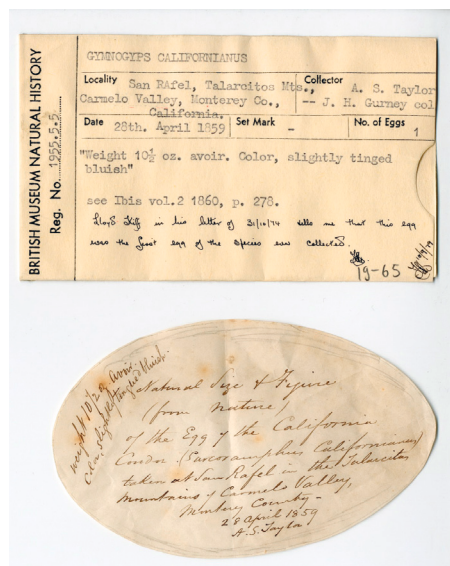 BRITISH MUSEUM NATURAL HISTORY
Reg. No. 1955.5.5.
GYMNOGYPS CALIFORNIANUS
Locality San RAfel, Talarcitos Mts.,
Carmelo Valley, Monterey Co.,
California.
Collector A. S. Taylor
-- J. H. Gurney col
Date 28th. April 1859
Set Mark -
No. of Eggs 1
"Weight 10½ oz. avoir. Color, slightly tinged
bluish"
see Ibis vol.2 1860, p. 278.
Lloyd Kiff in his letter of 31/10/74 tells me that this egg
was the first egg of the species ever collected.
19-65
weight 10 1/2 oz avoir.
Color, slightly tinged bluish.
Natural Size & Figure
(from nature)
of the Egg of the California
Condor (Sarcoramphus Californianus)
taken at San Rafel in the Talarcitos
mountains of Carmelo Valley,
Monterey County -
28 April 1859
A.S. Taylor